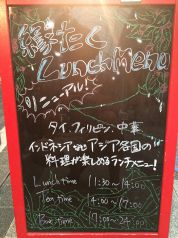 縁たく
Lunch Menu
リニューアル!
タイ、フィリピン、中華
インドネシアなど アジア各国の
料理が楽しめるランチメニュー!
Lunch time 11:30~14:00
Tea time 14:00~17:00
Bar time 17:00~24:00